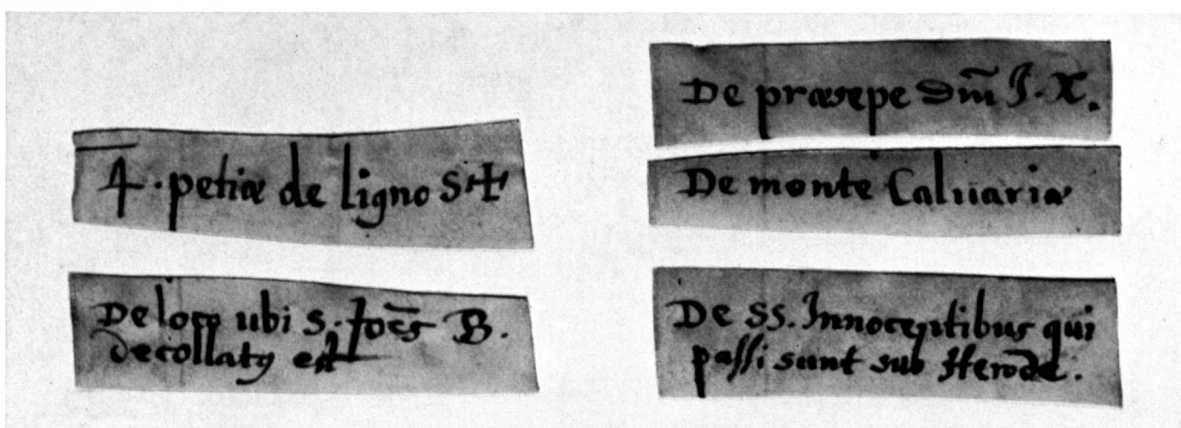 4 · petiæ de ligno S ✝
De loco ubi s. Joēs B.
decollatꝰ est
De præsepe Dm̄ J. X.
De monte Caluariæ
De SS. Innocentibus qui
passi sunt sub Herode.